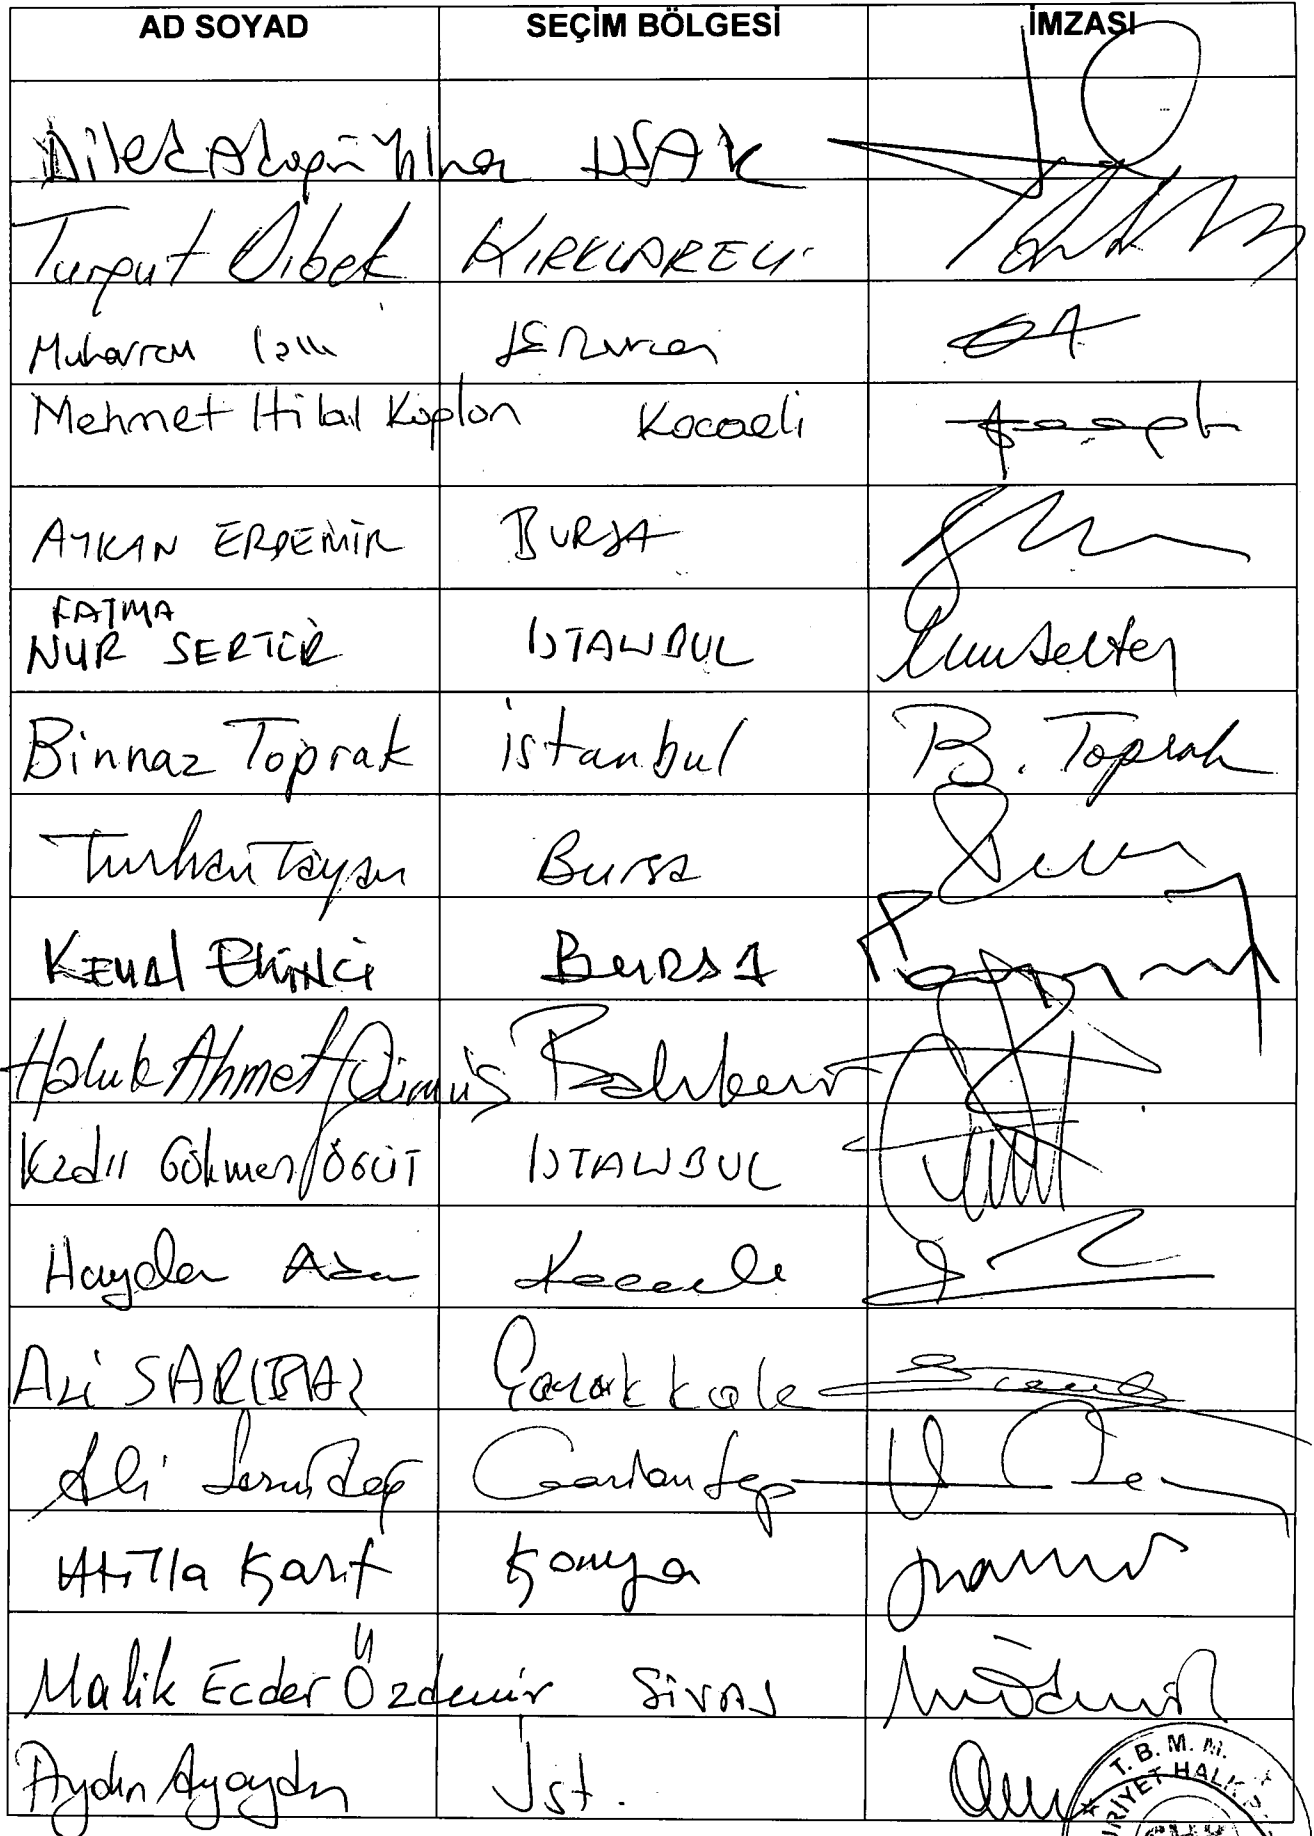 AD SOYAD SEÇİM BÖLGESİ İMZASI
Dilek Akagün Yılmaz UŞAK
Turgut Dibek KIRKLARELİ
Muharrem Işık Erzincan
Mehmet Hilal Kaplan Kocaeli
AYKAN ERDEMİR BURSA
FATMA
NUR SERTER İSTANBUL
Binnaz Toprak İstanbul B. Toprak
Turhan Tayan Bursa
KEMAL EKİNCİ BURSA
Haluk Ahmet Gümüş Balıkesir
Kadir Gökmen ÖĞÜT İSTANBUL
Haydar Akar Kocaeli
Ali SARIBAŞ Çanakkale
Ali Serindağ Gaziantep
Atilla Kart Konya
Malik Ecder Özdemir Sivas
Aydın Ayaydın İst.
T. B. M. M.
RİYET HALK